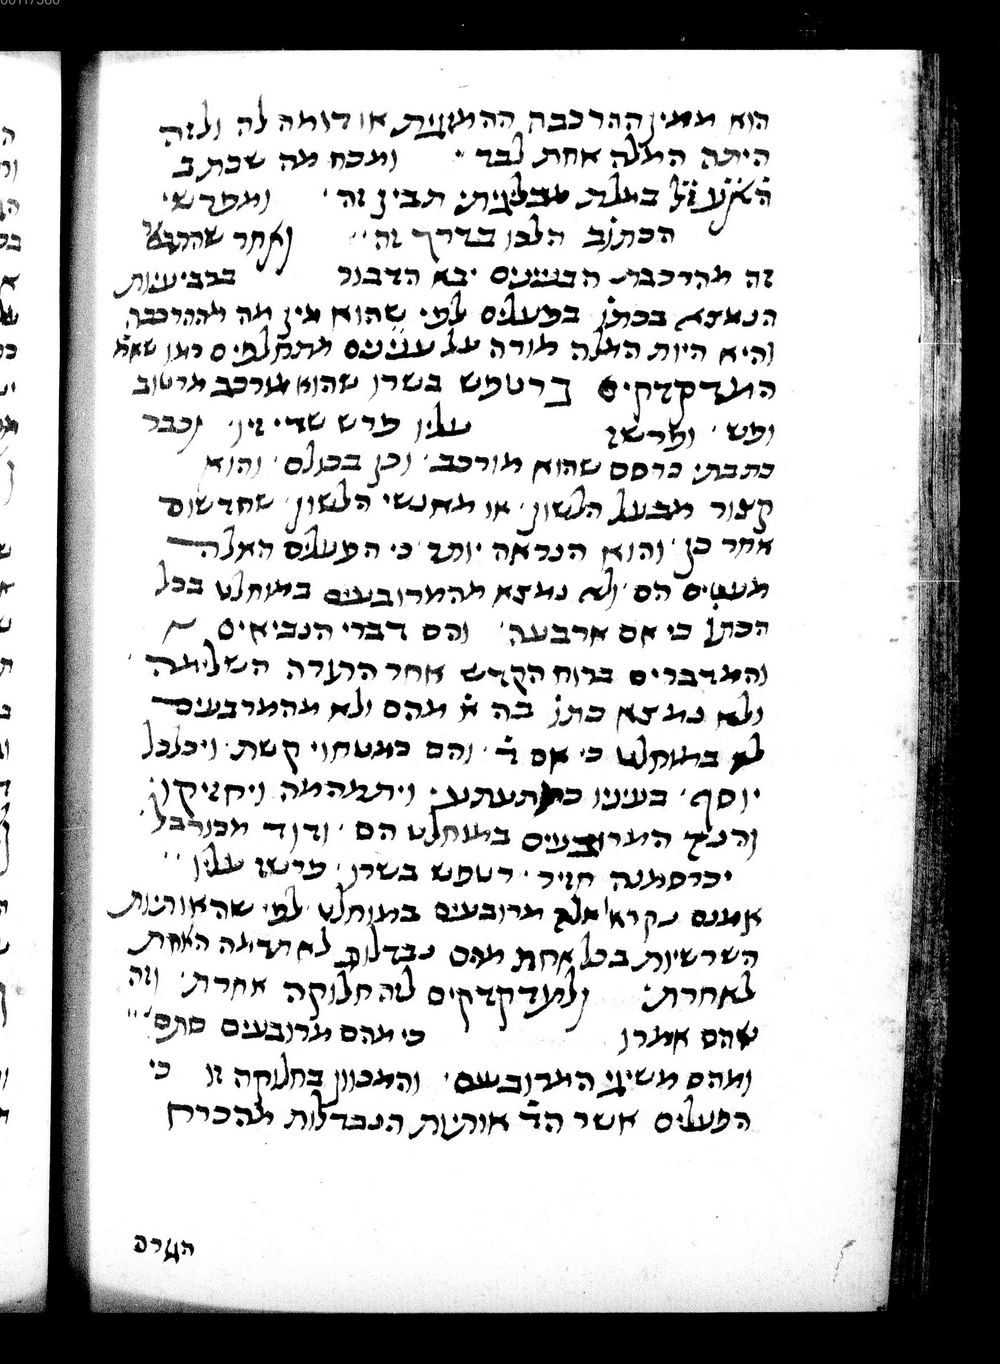 הוא ממין ההרכבה ההמונית או דומה לה ולזה
היתה המלה אחת לבד ומכח מה שכתב
במלת מבליגיתי תבין זה ומפרשי
הכתוב הלכו בדרך זה ואחר שהרכב
זה מהרכבת הבניינים יבא הדבור ברביעיות
הנמצא בכתו' בפעלים לפי שהוא מין מה מההרכבה
והיא היות המלה מורה על עניינים מתחלפים כמו שאמ'
המדקדקים ברטפש בשרו שהוא מורכב מרטוב
ופש' ופרשז עליו פרש שדי זיו' וכבר
כתבתי כרסם שהוא מורכב' וכן בכולם' והוא
קצור מבעל הלשון' או מאנשי הלשון' שחדשום
אחר כן' והוא הנראה יותר' כי הפעלים האלה
מעטים הם' ולא נמצא מהמרובעים במוחלט בכל
הכתו' כי אם ארבעה' והם דברי הנביאים
והמדברים ברוח הקדש אחר התורה השלימה
ולא נמצא כתו' בה א' מהם ולא מהמרבעים
לא במוחלט כי אם ד' והם כמטחוי קשת' ויכלכל
יוסף' בעיניו כמתעתע' ויתמהמה ויחזיקו'
והנה המרובעים במוחלט הם' ודוד מכורבל'
יכרסמנה חזיר' רטפש בשרו' פרשז עליו
אמנם נקרא אלה מרובעים במוחלט לפי שהאותיות
השרשיות בכל אחת מהם נבדלות לא תדמה האחת
לאחרת' ולמדקדקים לזה חלוקה אחרת' וזה
שהם אמרו כי מהם מרובעים סתם'
ומהם משיגי המרובעים' והמכוון בחלוקה זו כי
הפעלים אשר הד' אותיות הנבדלות מהכרח